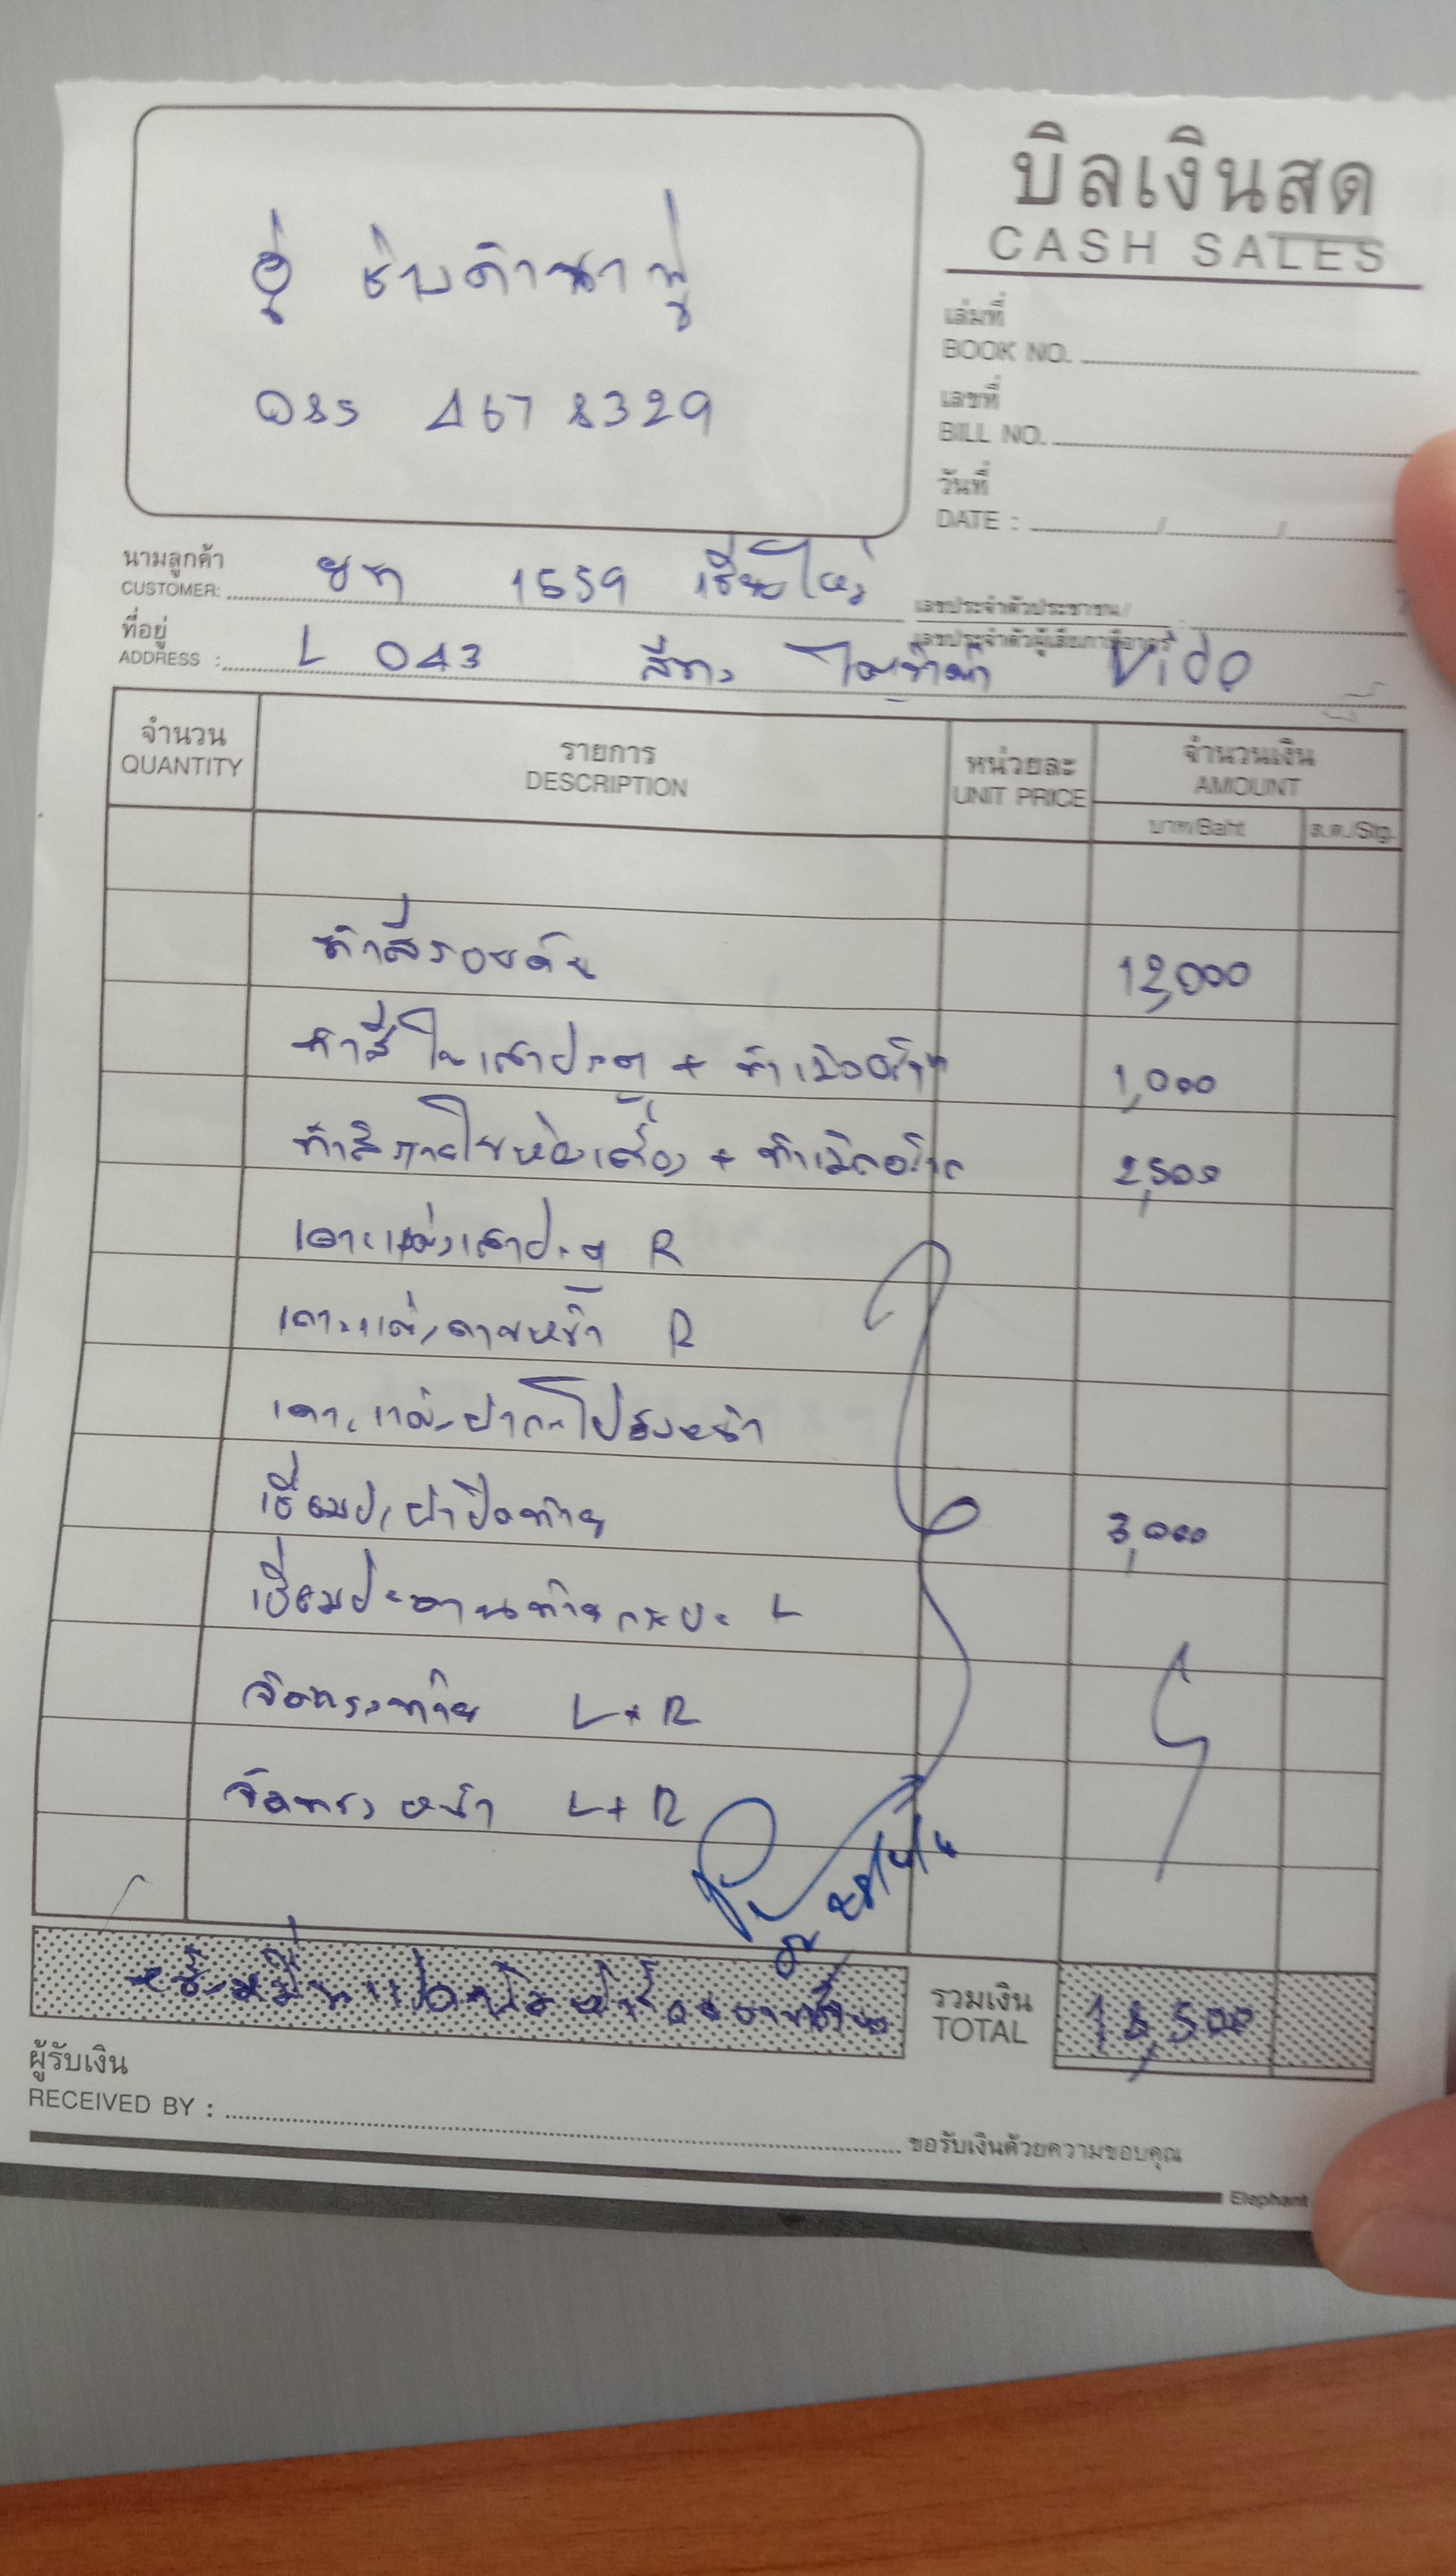 บิลเงินสด
CASH SALES
อู่ ช่างดำนาพู่
085 467 8329
เล่มที่
BOOK NO.
เลขที่
BILL NO.
วันที่
DATE : / /
นามลูกค้า
CUSTOMER: ยท 1559 เชียงใหม่
เลขประจำตัวประชาชน/
เลขประจำตัวผู้เสียภาษีอากร
ที่อยู่
ADDRESS : L 043 สีขาว Vigo
จำนวน
QUANTITY
รายการ
DESCRIPTION
หน่วยละ
UNIT PRICE
จำนวนเงิน
AMOUNT
บาท/Baht
ส.ต./Stg.
ทำสีรอบคัน 12,000
ทำสีในเสาประตู + 1,000
ทำสีภายในห้องเครื่อง + 2,500
เคาะแต่งเสาประตู R
เคาะแต่งคานหน้า R
เคาะแต่งฝากระโปรงหน้า
เชื่อมปะฝาปิดท้าย 3,000
เชื่อมปะคานท้ายกระบะ L
จัดทรงท้าย L+R
จัดทรงหน้า L+R
หนึ่งหมื่นแปดพันห้าร้อยบาทถ้วน
รวมเงิน
TOTAL
18,500
ผู้รับเงิน
RECEIVED BY :
ขอรับเงินด้วยความขอบคุณ
Elephant